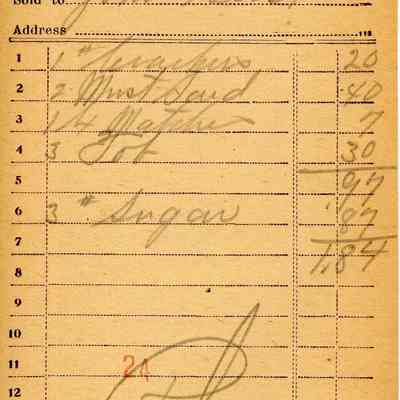 Sold to
Address 118
1 1 # Crackers 20
2 2 Must Sard 40
3 1 4 Matches 7
4 3 Tob 30
5 97
6 3 # Sugar 87
7 1,84
8
9
10
11 24
12